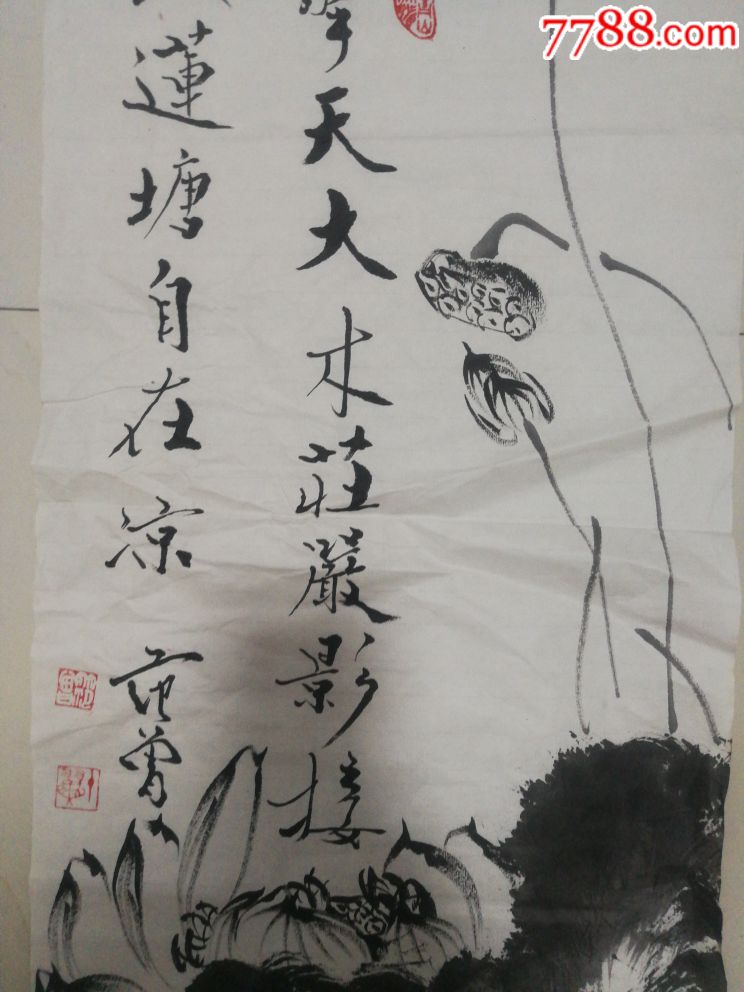 7788.com
擎天大木莊嚴影接
蓮塘自在凉
范曾